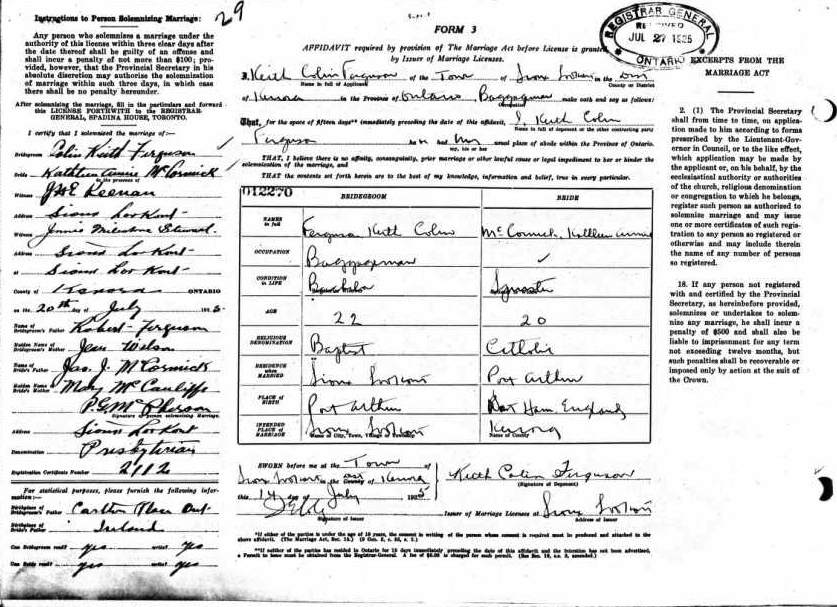 Instructions to Person Solemnizing Marriage:
29
Any person who solemnizes a marriage under the
authority of this license within three clear days after
the date thereof shall be guilty of an offense and
shall incur a penalty of not more than $100; pro-
vided, however, that the Provincial Secretary in his
absolute discretion may authorize the solemnization
of marriage within three days, in which case
there shall be no penalty hereunder.
After solemnizing the marriage, fill in the particulars and forward
this LICENSE FORTHWITH to the REGISTRAR-
GENERAL, SPADINA HOUSE, TORONTO.
I certify that I solemnized the marriage of:—
Bridegroom Colin Keith Ferguson
Bride Kathleen Annie McCormick
in the presence of
Witness J H E Keenan
Address Sioux Lookout
Witness Jennie Stewart
Address Sioux Lookout
at Sioux Lookout
County of Kenora ONTARIO
on the 20th day of July 1925
Name of Bridegroom's Father Robert Ferguson
Maiden Name of Bridegroom's Mother Jean Wilson
Name of Bride's Father Jas. J. McCormick
Maiden Name of Bride's Mother Mary McCauliffe
P.G. McPherson
Signature of person solemnizing Marriage.
Address Sioux Lookout
Denomination Presbyterian
Registration Certificate Number 2112
For statistical purposes, please furnish the following infor-
mation:—
Birthplace of Bridegroom's Father Carlton Place Ont
Birthplace of Bride's Father Ireland
Can Bridegroom read? yes write? yes
Can Bride read? yes write? yes
FORM 3
AFFIDAVIT required by provision of The Marriage Act before License is granted
by Issuer of Marriage Licenses.
I, Keith Colin Ferguson of the Town of Sioux Lookout in the Dist
Name in full of Applicant County or District
of Kenora in the Province of Ontario, Baggageman make oath and say as follows:
Occupation
That, for the space of fifteen days** immediately preceding the date of this affidavit, I Keith Colin
Name in full of deponent or the other contracting party
Ferguson had his usual place of abode within the Province of Ontario.
my, his or her
THAT, I believe there is no affinity, consanguinity, prior marriage or other lawful cause or legal impediment to bar or hinder the
solemnization of the marriage, and
THAT the contents set forth herein are to the best of my knowledge, information and belief, true in every particular.
012270
BRIDEGROOM BRIDE
NAMES in full Ferguson Keith Colin McCormick, Kathleen Annie
OCCUPATION Baggageman ✓
CONDITION in LIFE Bachelor Spinster
AGE 22 20
RELIGIOUS DENOMINATION Baptist Catholic
RESIDENCE when MARRIED Sioux Lookout Port Arthur
PLACE OF BIRTH Port Arthur Ham, England
INTENDED PLACE OF MARRIAGE Sioux Lookout Kenora
Name of City, Town, Village or Township Name of County
SWORN before me at the Town of
Sioux Lookout in the Dist County of Kenora
this 14 day of July 1925
Keith Colin Ferguson
(Signature of Deponent)
Signature of Issuer
Issuer of Marriage Licenses at Sioux Lookout
Address of Issuer
*If either of the parties is under the age of 18 years, the consent in writing of the person whose consent is required must be produced and attached to the
above affidavit. (The Marriage Act, Sec. 15.)
**If neither of the parties has resided in Ontario for 15 days immediately preceding the date of this affidavit and the intention has not been advertised,
a Permit to issue must be obtained from the Registrar-General. A fee of $5.00 is charged for such permit.
REGISTRAR GENERAL
RECEIVED
JUL 27 1925
ONTARIO
EXCERPTS FROM THE
MARRIAGE ACT
2. (1) The Provincial Secretary
shall from time to time, on applica-
tion made to him according to forms
prescribed by the Lieutenant-Gov-
ernor in Council, or to the like effect,
which application may be made by
the applicant or, on his behalf, by the
ecclesiastical authority or authorities
of the church, religious denomination
or congregation to which he belongs,
register such person as authorized to
solemnize marriage and may issue
one or more certificates of such regis-
tration to any person so registered or
otherwise and may include therein
the name of any number of persons
so registered.
18. If any person not registered
with and certified by the Provincial
Secretary, as hereinbefore provided,
solemnizes or undertakes to solem-
nize any marriage, he shall incur a
penalty of $500 and shall also be
liable to imprisonment for any term
not exceeding twelve months, but
such penalties shall be recoverable or
imposed only by action at the suit of
the Crown.